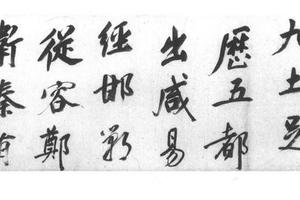 九土足
歷五都
出咸易
經邯鄲
從容鄭
衛秦